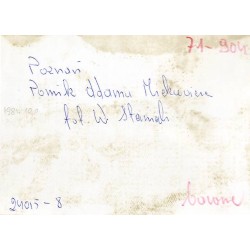 71-904
Poznań
Pomnik Adama Mickiewicza
fot. W Stamek
24015-8